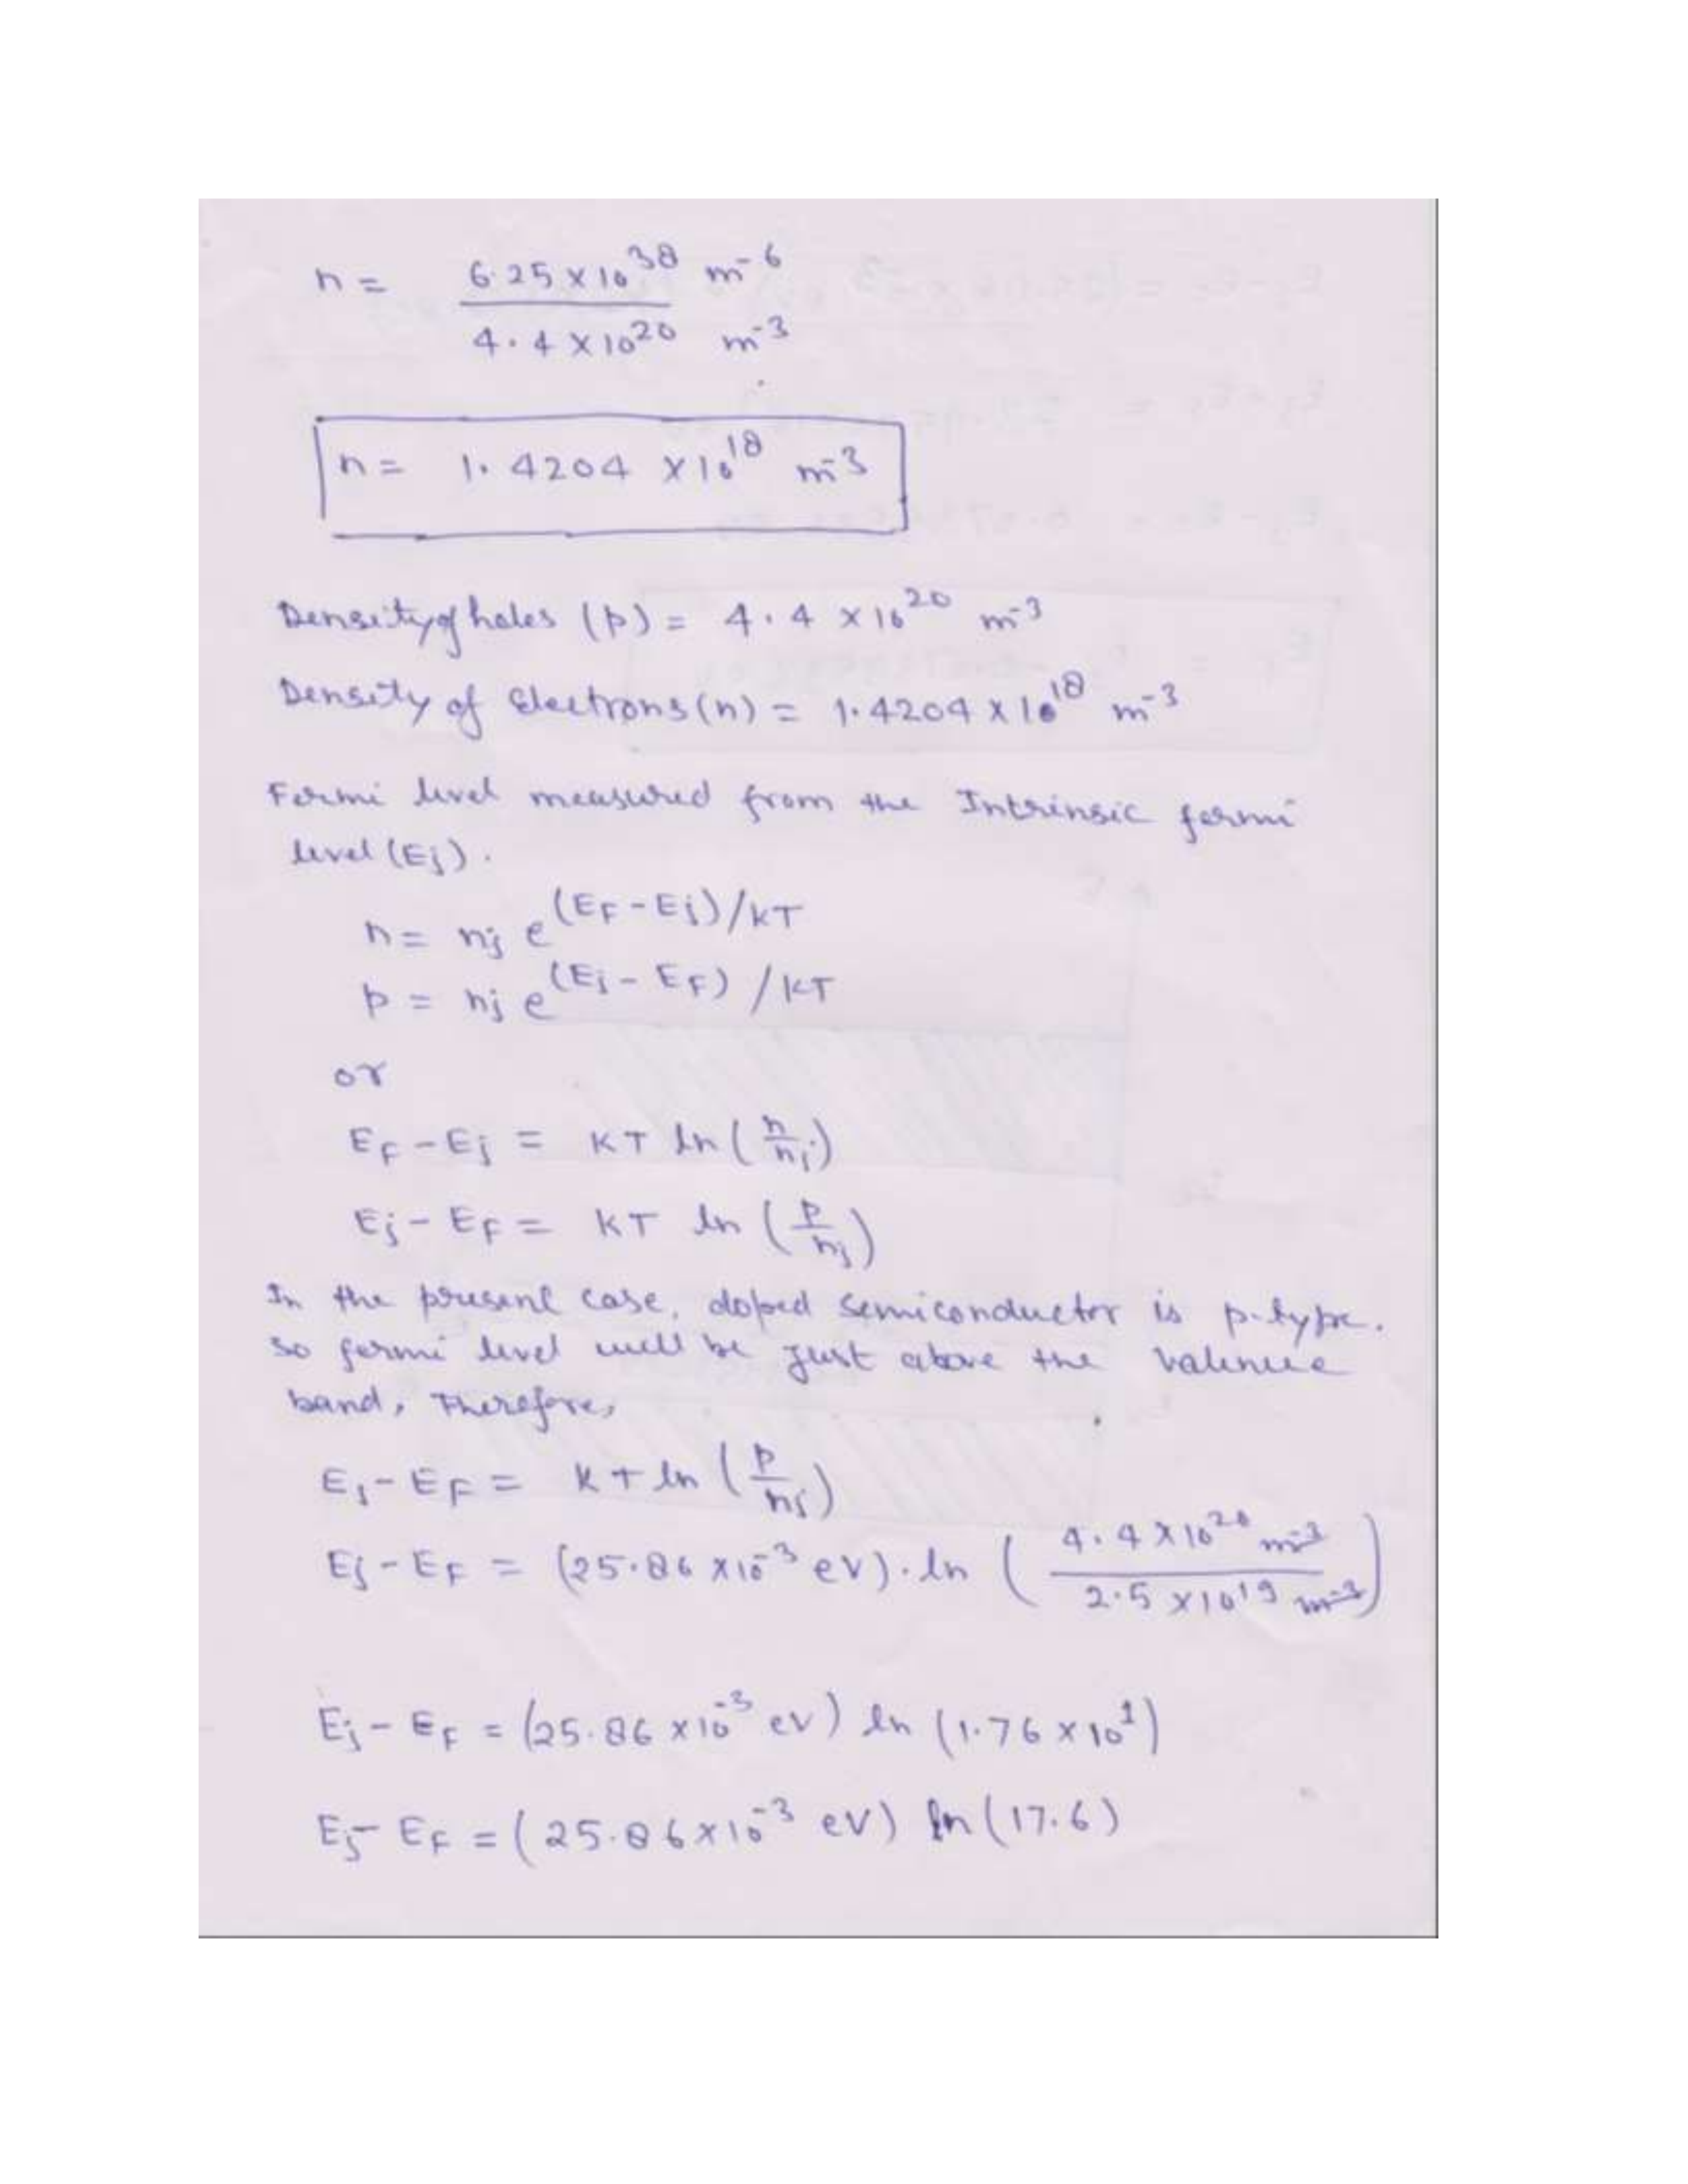 n = 6.25 × 10^38 m^-6 / 4.4 × 10^20 m^-3
n = 1.4204 × 10^18 m^-3
Density of holes (p) = 4.4 × 10^20 m^-3
Density of Electrons (n) = 1.4204 × 10^18 m^-3
Fermi level measured from the Intrinsic fermi
level (Ei).
n = ni e^(EF - Ei)/kT
p = ni e^(Ei - EF)/kT
or
EF - Ei = KT ln (n/ni)
Ei - EF = KT ln (p/ni)
In the present case, doped semiconductor is p-type.
So fermi level will be just above the valence
band, Therefore,
Ei - EF = KT ln (p/ni)
Ei - EF = (25.86 × 10^-3 eV) . ln (4.4 × 10^20 m^-3 / 2.5 × 10^19 m^-3)
Ei - EF = (25.86 × 10^-3 eV) ln (1.76 × 10^1)
Ei - EF = (25.86 × 10^-3 eV) ln (17.6)